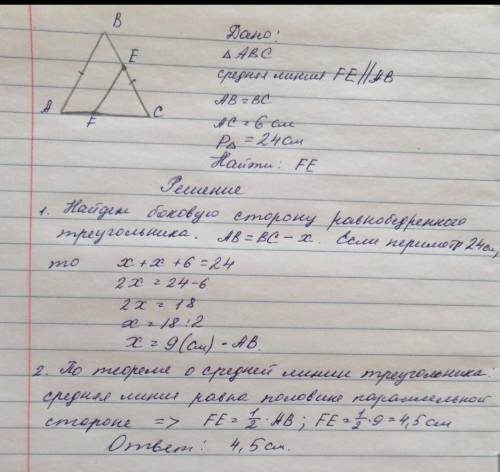 B
E
A
F
C
Дано:
△ ABC
средняя линия FE//AB
AB=BC
AC=6 см
P△ =24см
Найти: FE
Решение
1. Найдем боковую сторону равнобедренного
треугольника. AB=BC-x. Если периметр 24см,
то x+x+6=24
2x=24-6
2x=18
x=18:2
x=9(см)-AB.
2. По теореме о средней линии треугольника:
средняя линия равна половине параллельной
стороне => FE=1/2·AB; FE=1/2·9=4,5см
Ответ: 4,5см.